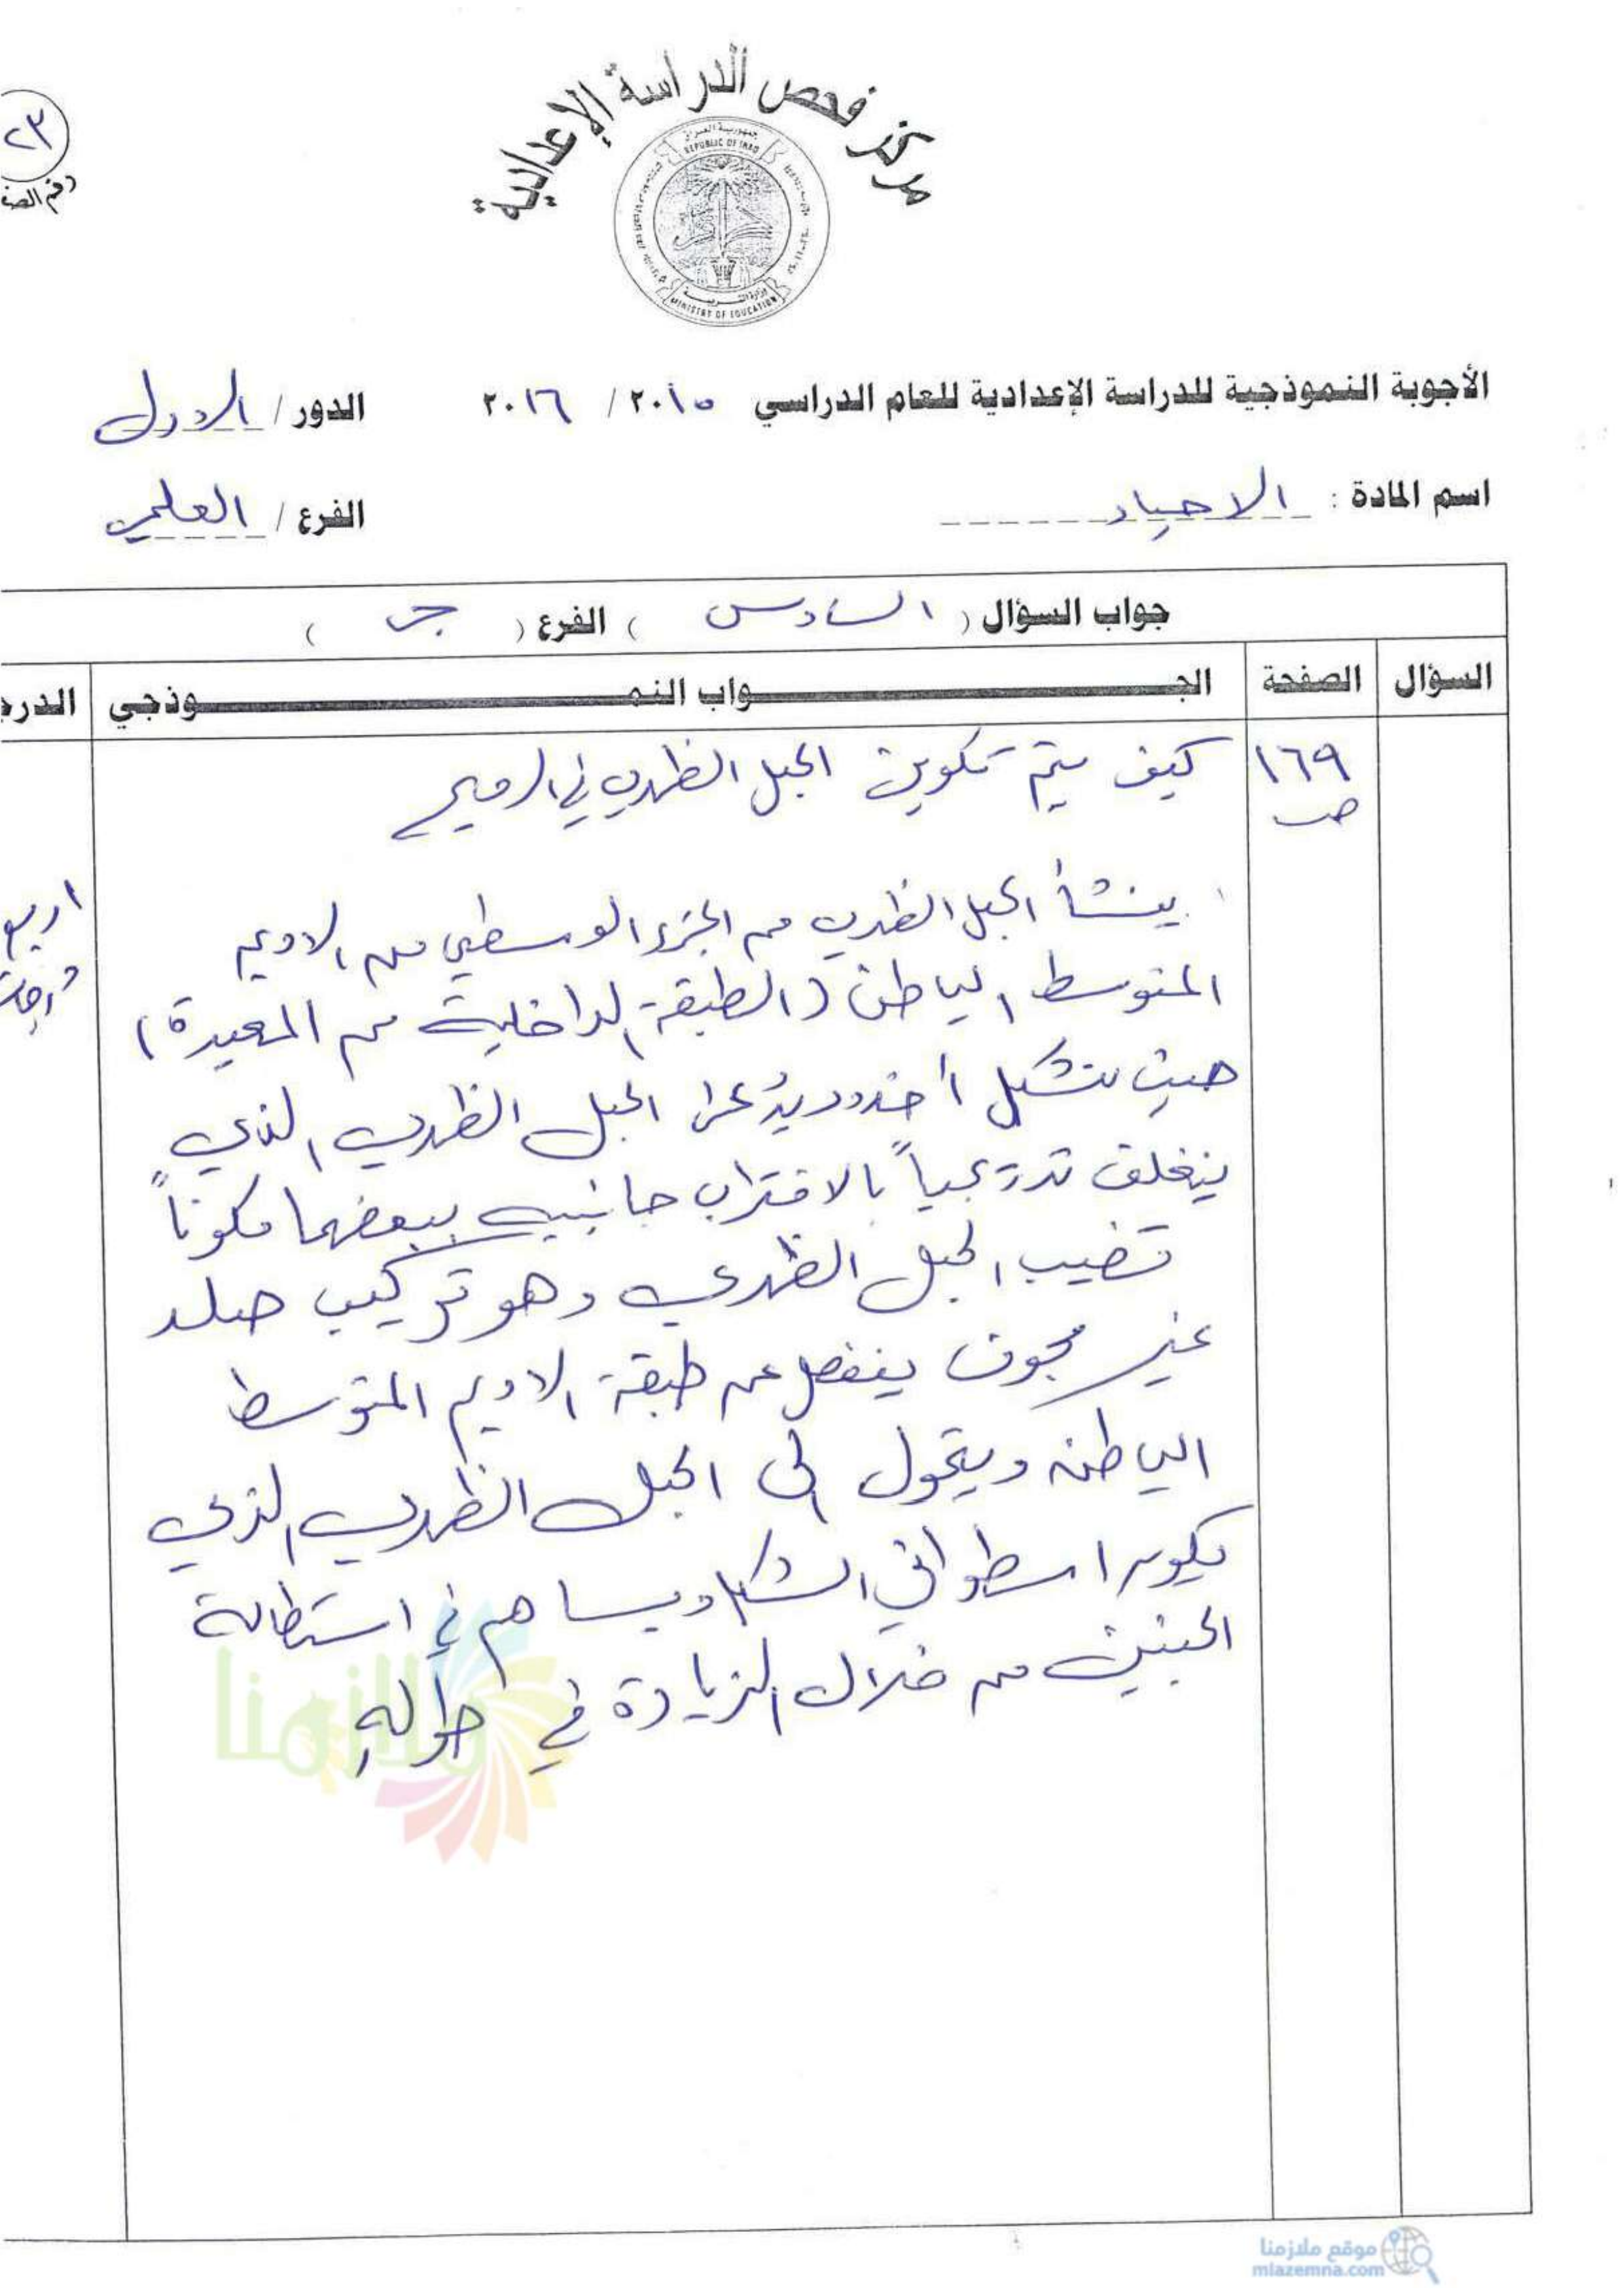 مركز فحص الدراسة الإعدادية
جمهورية العراق
REPUBLIC OF IRAQ
وزارة التربية
MINISTRY OF EDUCATION
٢٣
رقم الصف
الأجوبة النموذجية للدراسة الإعدادية للعام الدراسي ٢٠١٥ / ٢٠١٦ الدور / الاول
اسم المادة : الاحياء الفرع / العلمي
جواب السؤال ( السادس ) الفرع ( جـ )
السؤال الصفحة الجـــواب النمـــوذجي الدرج
١٦٩
ص
كيف يتم تكوين الحبل الظهري في الرميح
ينشأ الحبل الظهري من الجزء الوسطي من الاديم
المتوسط الباطن (الطبقة الداخلية من المعيدة)
حيث تتشكل أخدود يدعى الحبل الظهري الذي
ينغلق تدريجياً بالاقتراب جانبيه ببعضهما مكوناً
قضيب الحبل الظهري وهو تركيب صلد
غير مجوف ينفصل عن طبقة الاديم المتوسط
الباطن ويتحول الى الحبل الظهري الذي
يكون اسطواني الشكل ويساهم في استطالة
الجنين من خلال الزيادة في طوله
اربع
درجات
ملازمنا
موقع ملازمنا
mlazemna.com